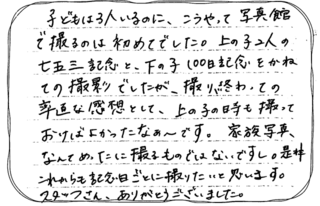 子どもは3人いるのに、こうやって写真館
で撮るのは初めてでした。上の子2人の
七五三記念と、下の子100日記念をかね
ての撮影でしたが、撮り終わっての
率直な感想として、上の子の時も撮って
おけばよかったなぁ〜です。家族写真、
なんてめったに撮るものではないですし。是非
これからも記念日ごとに撮りたいと思います。
スタッフさん、ありがとうございました。